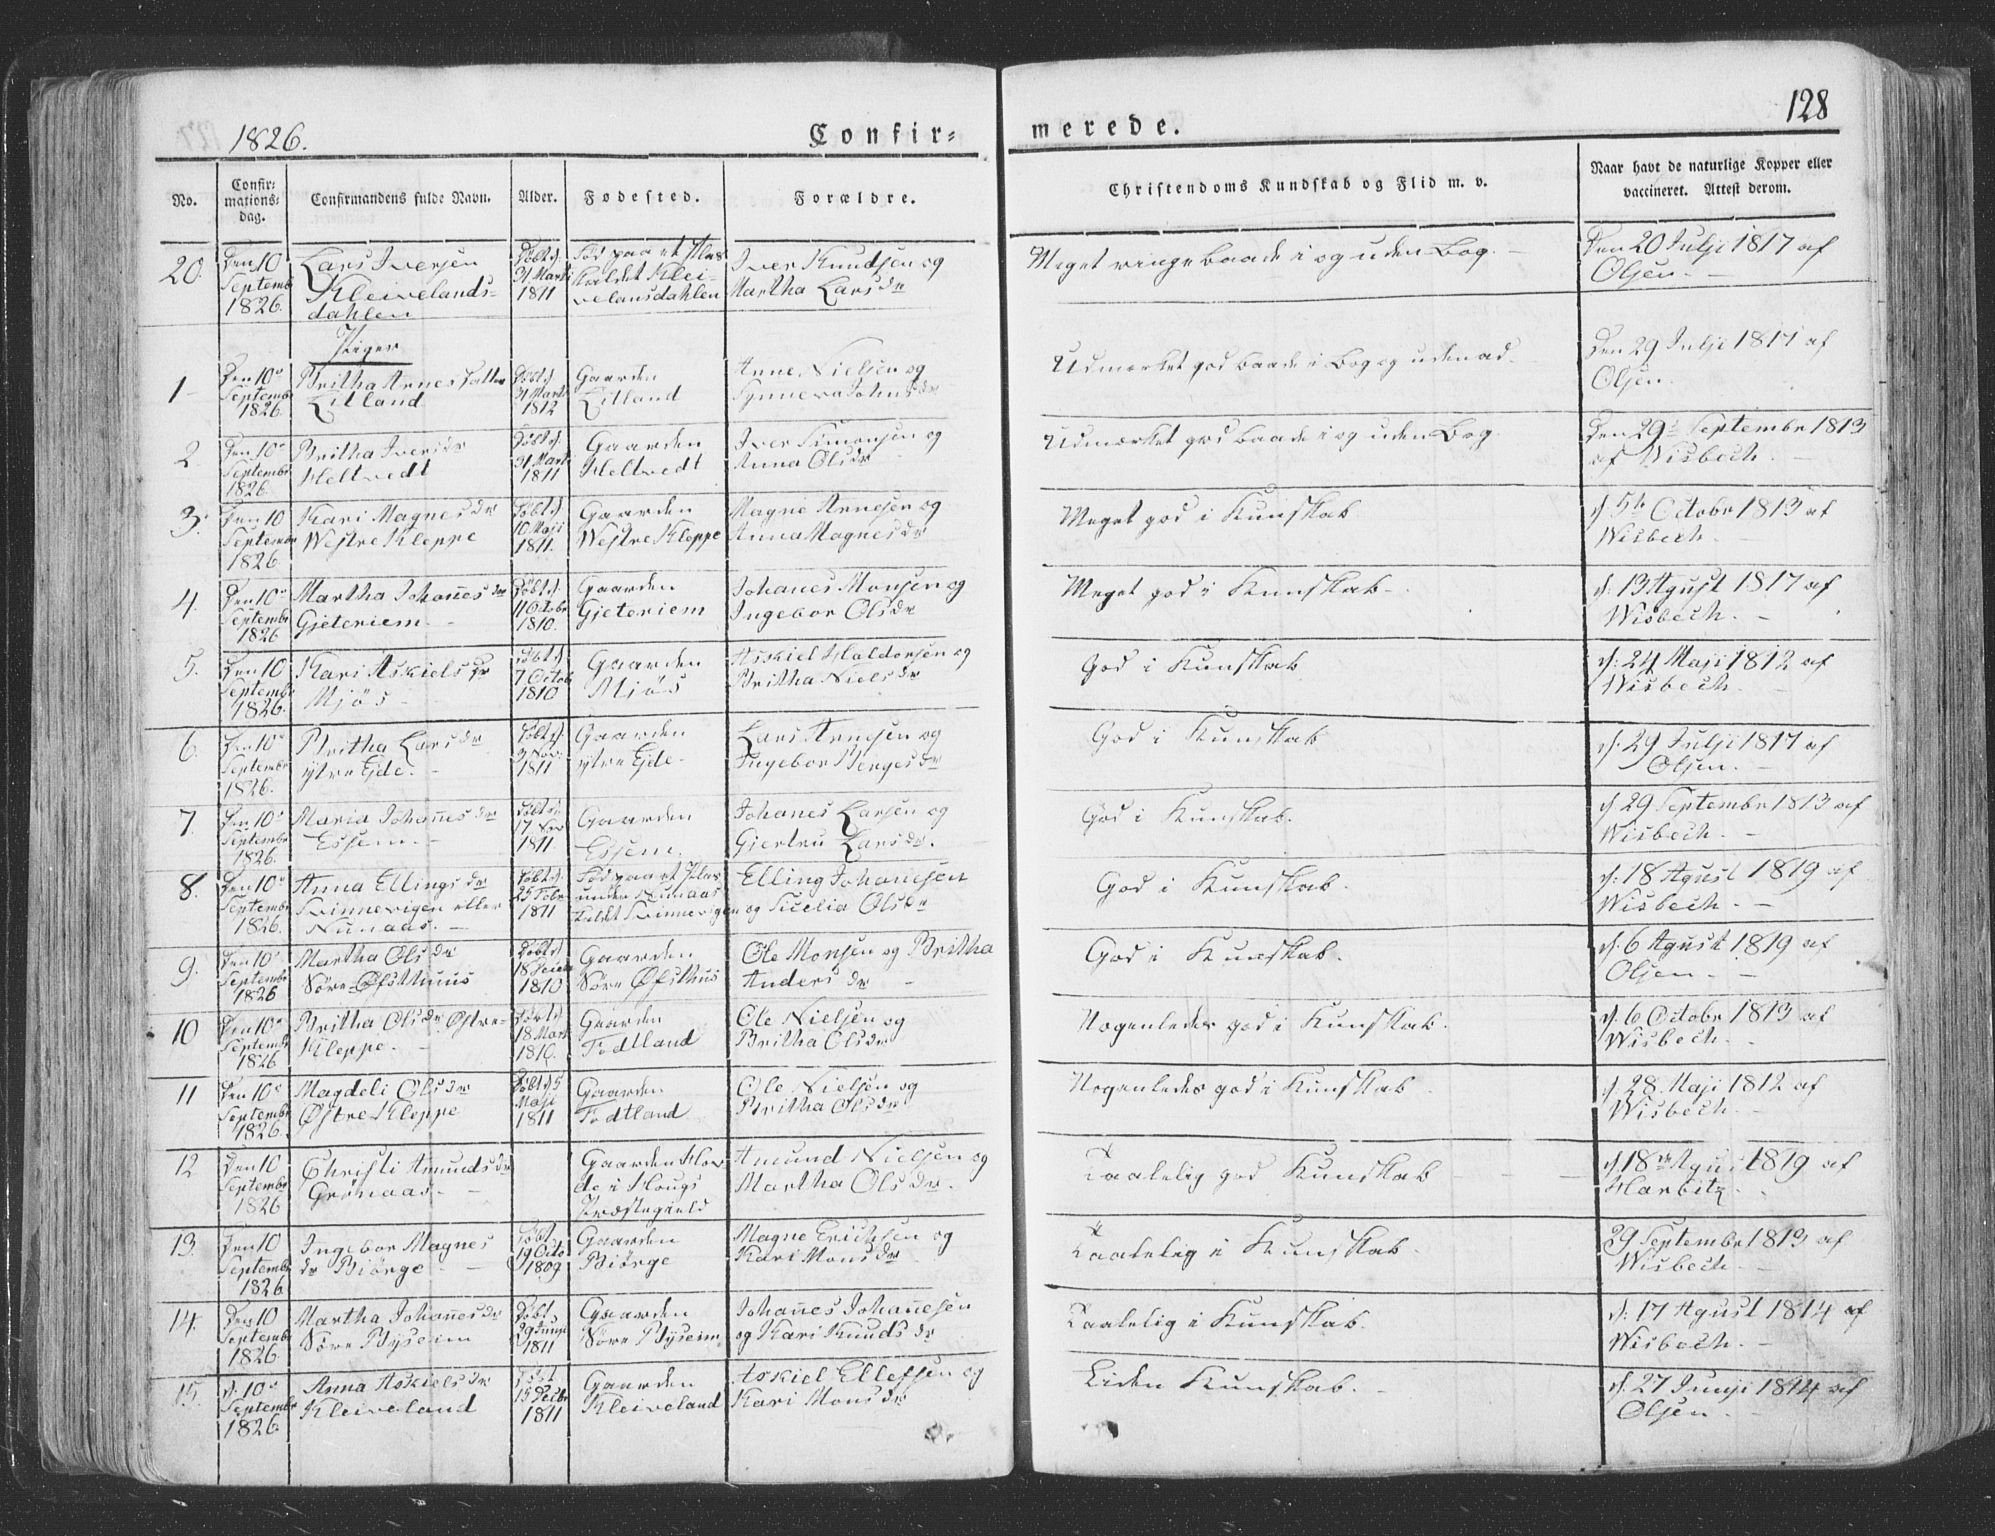 1826.
Confir=
merede.
128
No.
Confir=
mations=
dag.
Confirmandens fulde Navn.
Alder.
Fødested.
Forældre.
Christendoms Kundskab og Flid m. v.
Naar havt de naturlige Kopper eller
vaccineret. Attest derom.
20.
Den 10
Septembr
1826.
Lars Iversen
Kleivelands-
dahlen
Døbt d.
31 Marti
1811
Fød paa et Plas
kaldet Klei-
velansdahlen
Iver Knudsen og
Martha Larsdr
Meget ringe baade i og uden Bog. -
Den 20 Julji 1817 af
Olsen. -
Piger
1
Den 10de
Septembr
1826.
Britha Arnes Datter
Eitland
Døbt d.
31 Marti
1812
Gaarden
Eitland
Arne Nielsen og
Synneva Johnsdr
Udmærket god baade i Bog og udenad.
Den 29 Julji 1817 af
Olsen.
2.
Den 10de
Septembr
1826.
Britha Iversdr
Heltvedt
Døbt d.
31 Marti
1811
Gaarden
Heltvedt
Iver Simonsen og
Anna Olsdr
Udmærket god baade i og uden Bog.
Den 29de Septembr 1813
af Wisbech. -
3.
Den 10
Septembr
1826.
Kari Magnesdr
Westre Kleppe
Døbt d.
10 Maji
1811.
Gaarden
Westre Kleppe
Magne Arnesen og
Anna Magnesdr
Meget god i Kunskab
d. 5te Octobr 1813 af
Wisbech. -
4.
Den 10de
Septembr
1826
Martha Johañesdr
Gjeteriem. -
Døbt d.
11 Octobr
1810.
Gaarden
Gjeteriem
Johanes Monsen og
Ingebor Olsdr
Meget god i Kunskab. -
d: 13 Agust 1817 af
Wisbech. -
5.
Den 10
Septembr
1826.
Kari Askielsdr
Mjøs -
Døbt d.
7 Octob
1810
Gaarden
Mjøs
Askiel Haldorsen og
Britha Nielsdr
God i Kunskab
d: 24 Maji 1812 af
Wisbech. -
6.
Den 10de
Septembr
1826.
Britha Larsdr
ytre Eide. -
Døbt d.
3 Nov:
1811
Gaarden
ytre Eide -
Lars Arnesen og
Ingebor Børgesdr
God i Kunskab
d: 29 Julji 1817 af
Olsen. -
7.
Den 10de
Septembr
1826.
Maria Johañesdr
Essem. -
Døbt d.
17 Nov
1811
Gaarden
Essem.
Johanes Larsen og
Giertru Larsdr.
God i Kunskab.
d 29 Septembr 1813 af
Wisbech. -
8.
Den 10de
Septembr
1826.
Anna Ellingsdr
Svinnevigen eller
Nunaas. -
Døbt d.
25 Febr
1811
Fød paa et Plas
under Nunaas
kaldet Svinnevigen
Elling Johanesen
og Sicelia Olsdr
God i Kunskab.
d: 18 Agust 1819 af
Wisbech. -
9.
Den 10de
Septembr
1826
Martha Olsdr
Søre Øfsthuus
Døbt d.
18
1810
Gaarden
Søre Øfsthus
Ole Monsen og Britha
Andersdr -
God i Kunskab.
d. 6 Agust 1819 af
Olsen. -
10
Den 10de
Septembr
1826
Britha Olsdr Østre-
Kleppe. -
Døbt d.
18 Mart
1810.
Gaarden
Todtland
Ole Nielsen og
Britha Olsdr
Nogenledes god i Kunskab.
d. 6 Octobr 1813 af
Wisbech. -
11
Den 10de
Septembr
1826.
Magdeli Olsdr
Østre Kleppe
Døbt d 5
Maji
1811
Gaarden
Todtland
Ole Nielsen og
Britha Olsdr
Nogenledes god i Kunskab
d. 28 Maji 1812 af
Wisbech. -
12
Den 10
Septembr
1826
Christi Amundsdr
Grønaas. -
Gaarden Hov
de i Hougs
Præstegield
Amund Nielsen og
Martha Olsdr.
Taalelig god Kunskab
d: 18de Agust 1819 af
Harbitz.
13.
Den 10
Septembr
1826.
Ingebor Magnes
dr Biørge -
Døbt
19 Octo
1809
Gaarden
Biørge
Magne Erichsen og
Kari Monsdr
Taalelig i Kunskab.
29 Septembr 1813 af
Wisbech. -
14.
Den 10
Septembr
1826.
Martha Johañesdr
Søre Byseim
Døbt
29 Junji
1811
Gaarden
Søre Byseim.
Johañes Johañesen
og Kari Knudsdr
Taalelig i Kunskab.
d. 17 Agust 1814 af
Wisbech. -
15.
d: 10de
Septembr
1826
Anna Askielsdr
Kleiveland
Døbt
15 Decbr
1811
Gaarden
Kleiveland
Askiel Ellefsen og
Kari Monsdr
Liden Kunskab. -
d. 27 Junji 1814 af
Olsen. -